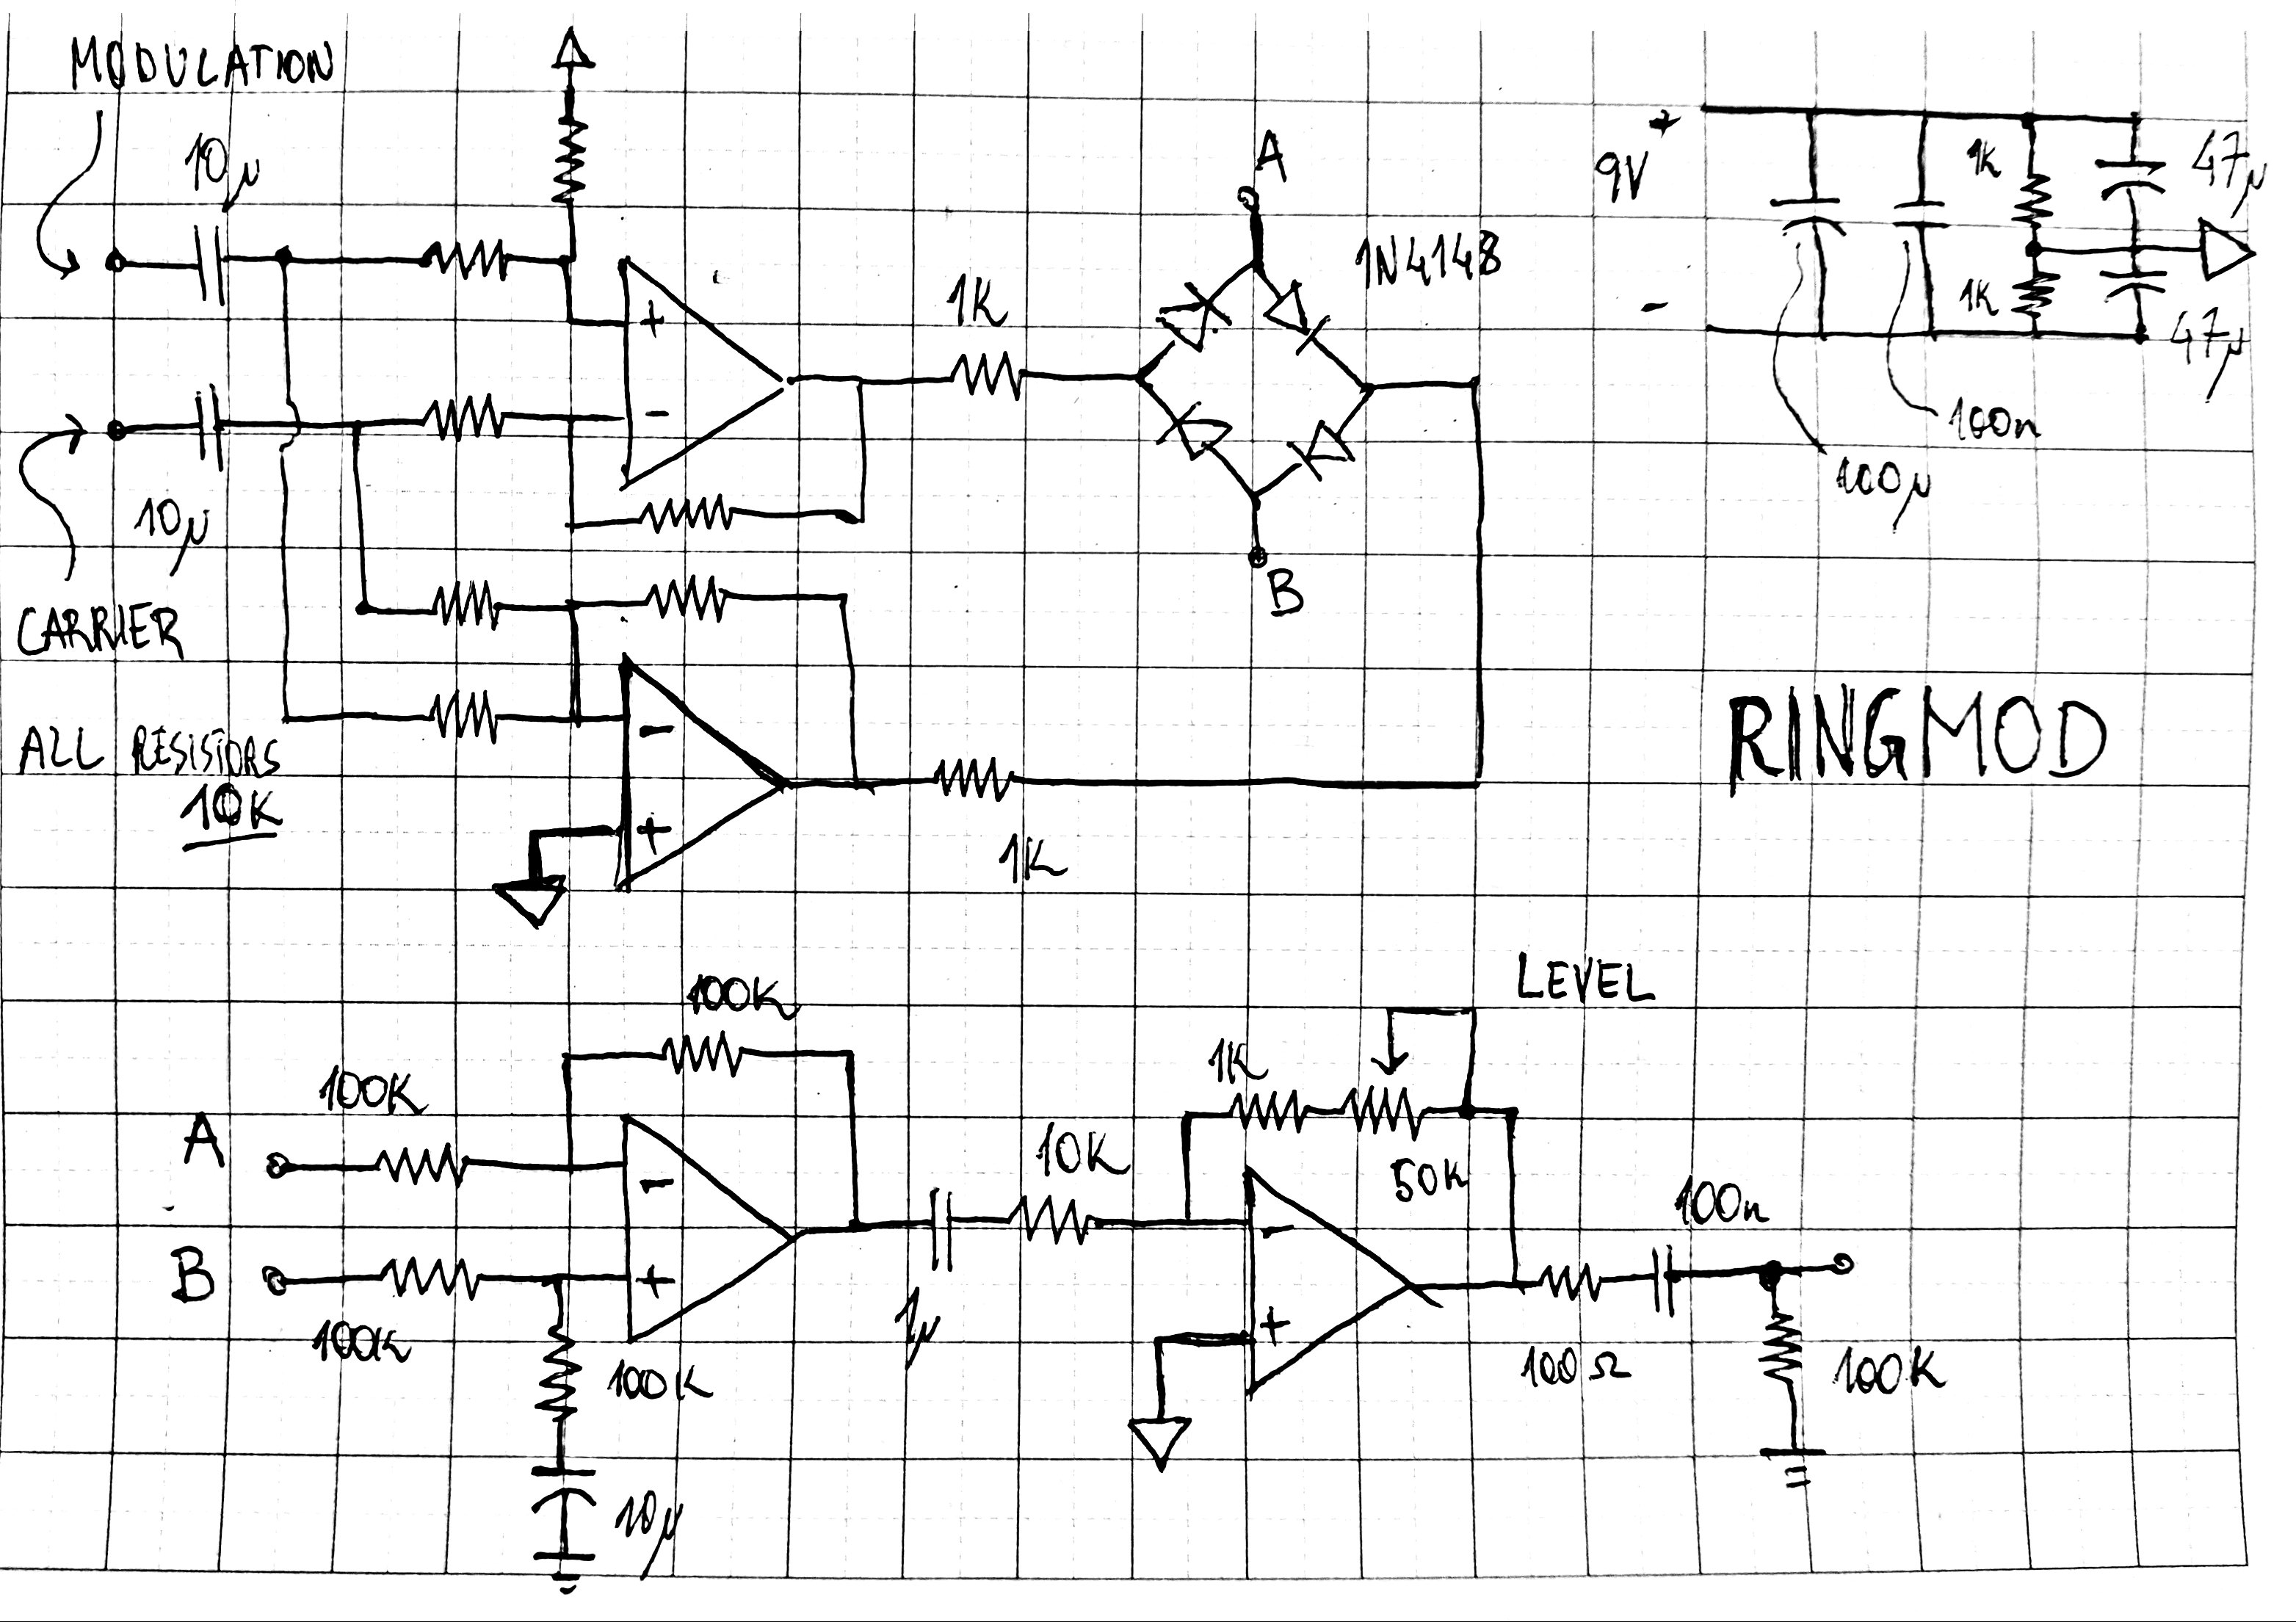 MODULATION
10µ
+
-
10µ
CARRIER
ALL RESISTORS
10K
1K
A
1N4148
B
-
+
1K
+
9V
-
1K
1K
47µ
47µ
100n
100µ
RINGMOD
100K
100K
A
B
100K
-
+
100K
10µ
1µ
10K
1K
LEVEL
50K
-
+
100Ω
100n
100K